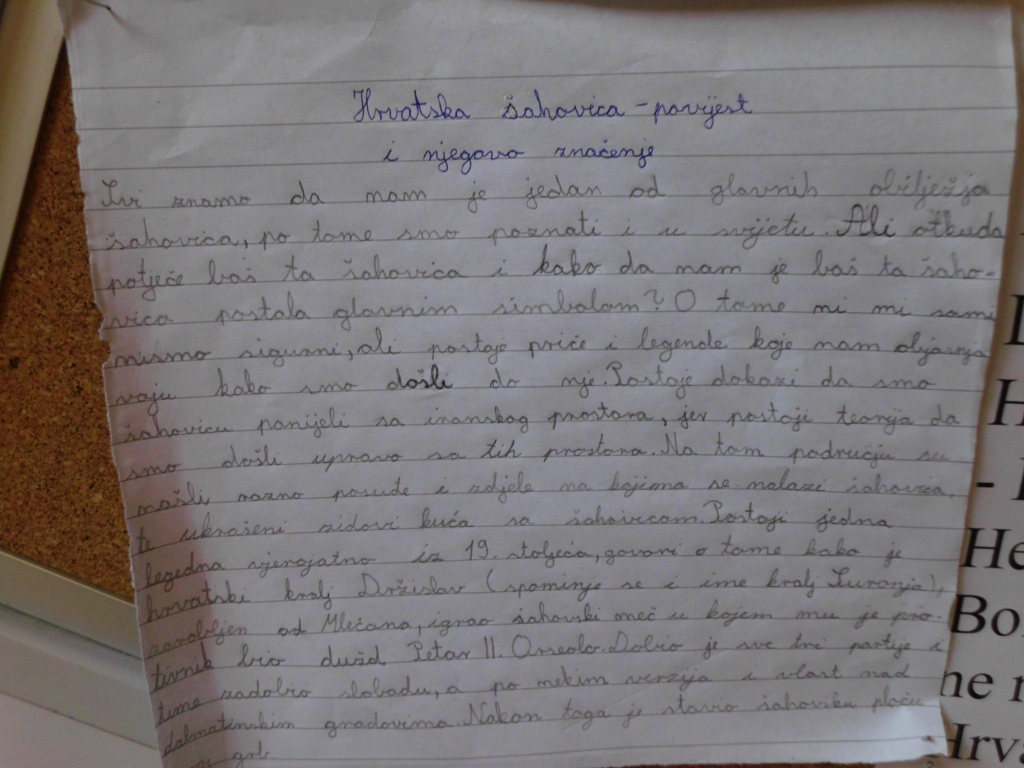 Hrvatska šahovica - povijest
i njegovo značenje
Svi znamo da nam je jedan od glavnih obilježja
šahovica, po tome smo poznati i u svijetu. Ali otkuda
potječe baš ta šahovica i kako da nam je baš ta šaho-
vica postala glavnim simbolom? O tome ni mi sami
nismo sigurni, ali postoje priče i legende koje nam objašnja
vaju kako smo došli do nje. Postoje dokazi da smo
šahovicu ponijeli sa iranskog prostora, jer postoji teorija da
smo došli upravo sa tih prostora. Na tom području su
našli razno posuđe i zdjele na kojima se nalazi šahovica,
te ukrašeni zidovi kuća sa šahovicom. Postoji jedna
legedna vjerojatno iz 19. stoljeća, govori o tome kako je
hrvatski kralj Držislav (spominje se i ime kralj Suronja),
zarobljen od Mlečana, igrao šahovski meč u kojem mu je pro-
tivnik bio dužd Petar II. Orseolo. Dobio je sve tri partije i
time zadobio slobodu, a po nekim verzija i vlast nad
dalmatinskim gradovima. Nakon toga je stavio šahovsku ploču
grb.
He
Bo
ne
Hrva